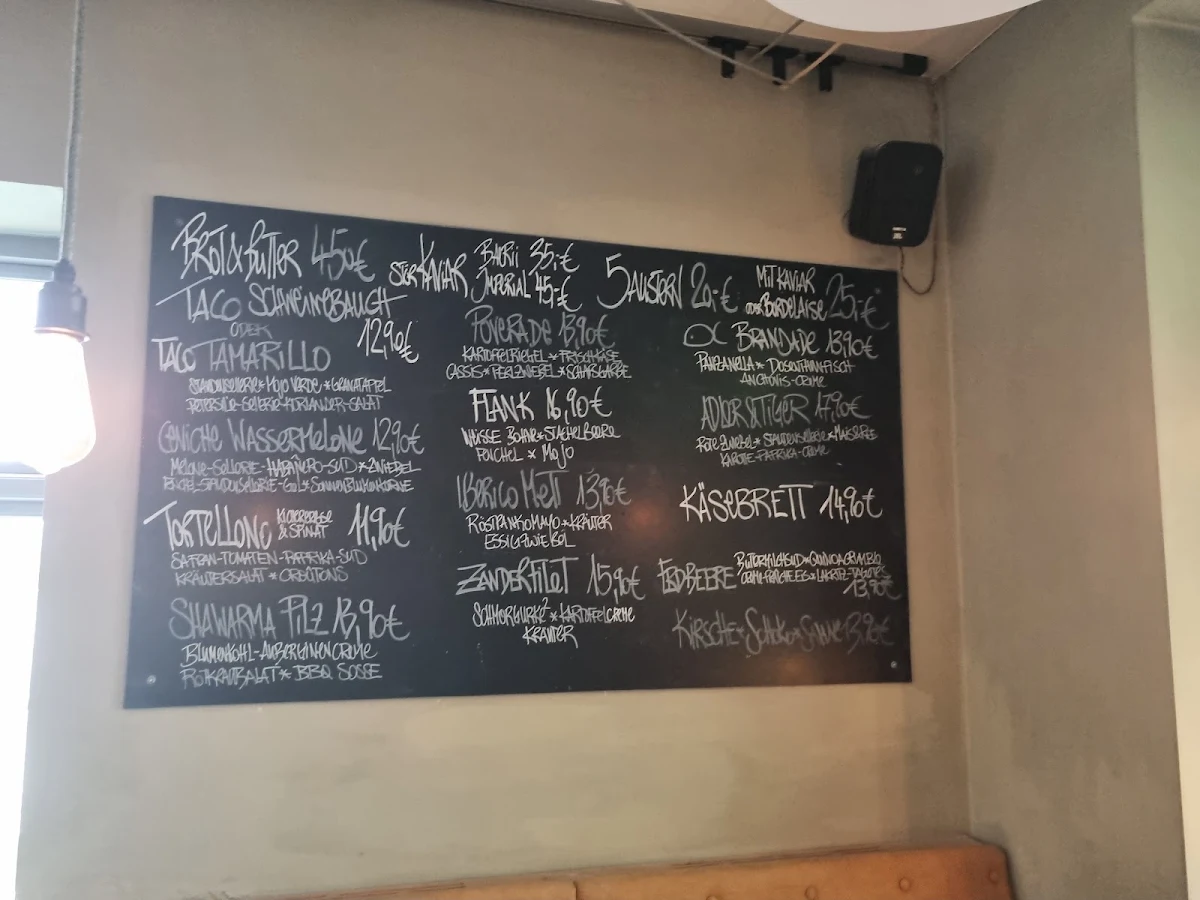 BROT & BUTTER 4,50€
TACO SCHWEINEBAUCH
ODER 12,90€
TACO TAMARILLO
STAUDENSELLERIE * MOJO VERDE * GRANATAPFEL
PETERSILIE-SELLERIE-KORIANDER-SALAT
CEVICHE WASSERMELONE 12,90€
MELONE-SELLERIE-HABAÑERO-SUD * ZWIEBEL
FENCHEL-STAUDENSELLERIE-GEL * SONNENBLUMENKERNE
TORTELLONE KICHERERBSE & SPINAT 11,90€
SAFRAN-TOMATEN-PAPRIKA-SUD
KRÄUTERSALAT * CROÛTONS
SHAWARMA PILZ 13,90€
BLUMENKOHL-AUBERGINENCREME
ROTKRAUTSALAT * BBQ SOSSE
STÖR KAVIAR BAERII 35,-€
IMPERIAL 45,-€
POVERADE 13,90€
KARTOFFELRICHEL * FRISCHKÄSE
CASSIS * PERLZWIEBEL * SCHAFGARBE
FLANK 16,90€
WEISSE BOHNE * STACHELBEERE
FENCHEL * MOJO
IBERICO METT 13,90€
RÖSTPANKOMAYO * KRÄUTER
ESSIGZWIEBEL
ZANDERFILET 15,90€
SCHMORGURKE² * KARTOFFELCREME
KRÄUTER
5 AUSTERN 20,-€ MIT KAVIAR
ODER BORDELAISE 25,-€
BRANDADE 13,90€
PANZANELLA * DOSENTHUNFISCH
ANCHOVIS-CREME
ADLER SETIGER 17,90€
ROTE ZWIEBEL * STAUDENSELLERIE *
KAROTTE-PAPRIKA-CREME
KÄSEBRETT 14,90€
ERDBEERE BUTTERMILCHSUD *
13,90€
KIRSCHE * SCHOKO * SAHNE 13,90€